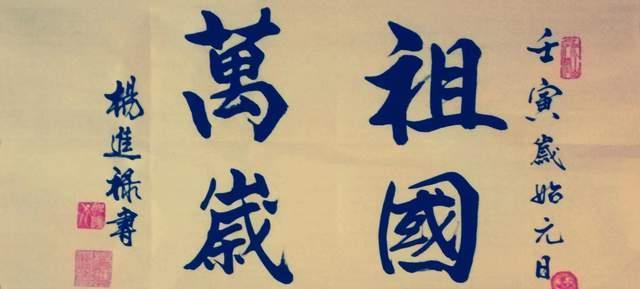 壬寅歲始元日
祖國
萬歲
楊進祿書